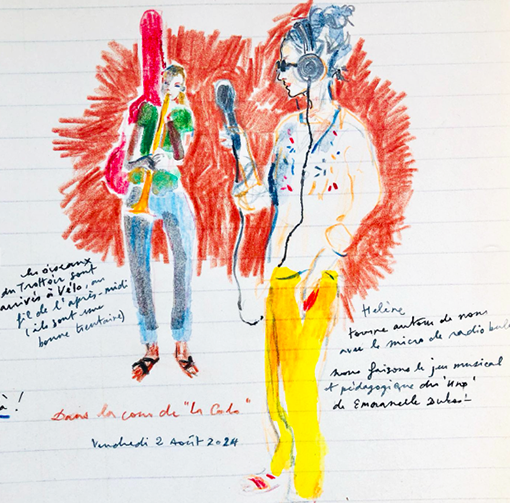 les oiseaux
du Trottoir sont
arrivés à Vélo, au
fil de l'après-midi
(ils sont une
bonne trentaine)
à !
Dans la cour de "La Colo"
Vendredi 2 Août 2024
Hélène
tourne autour de nous
avec le micro de radio
nous faisons le jeu musical
et pédagogique du
de Emmanuelle